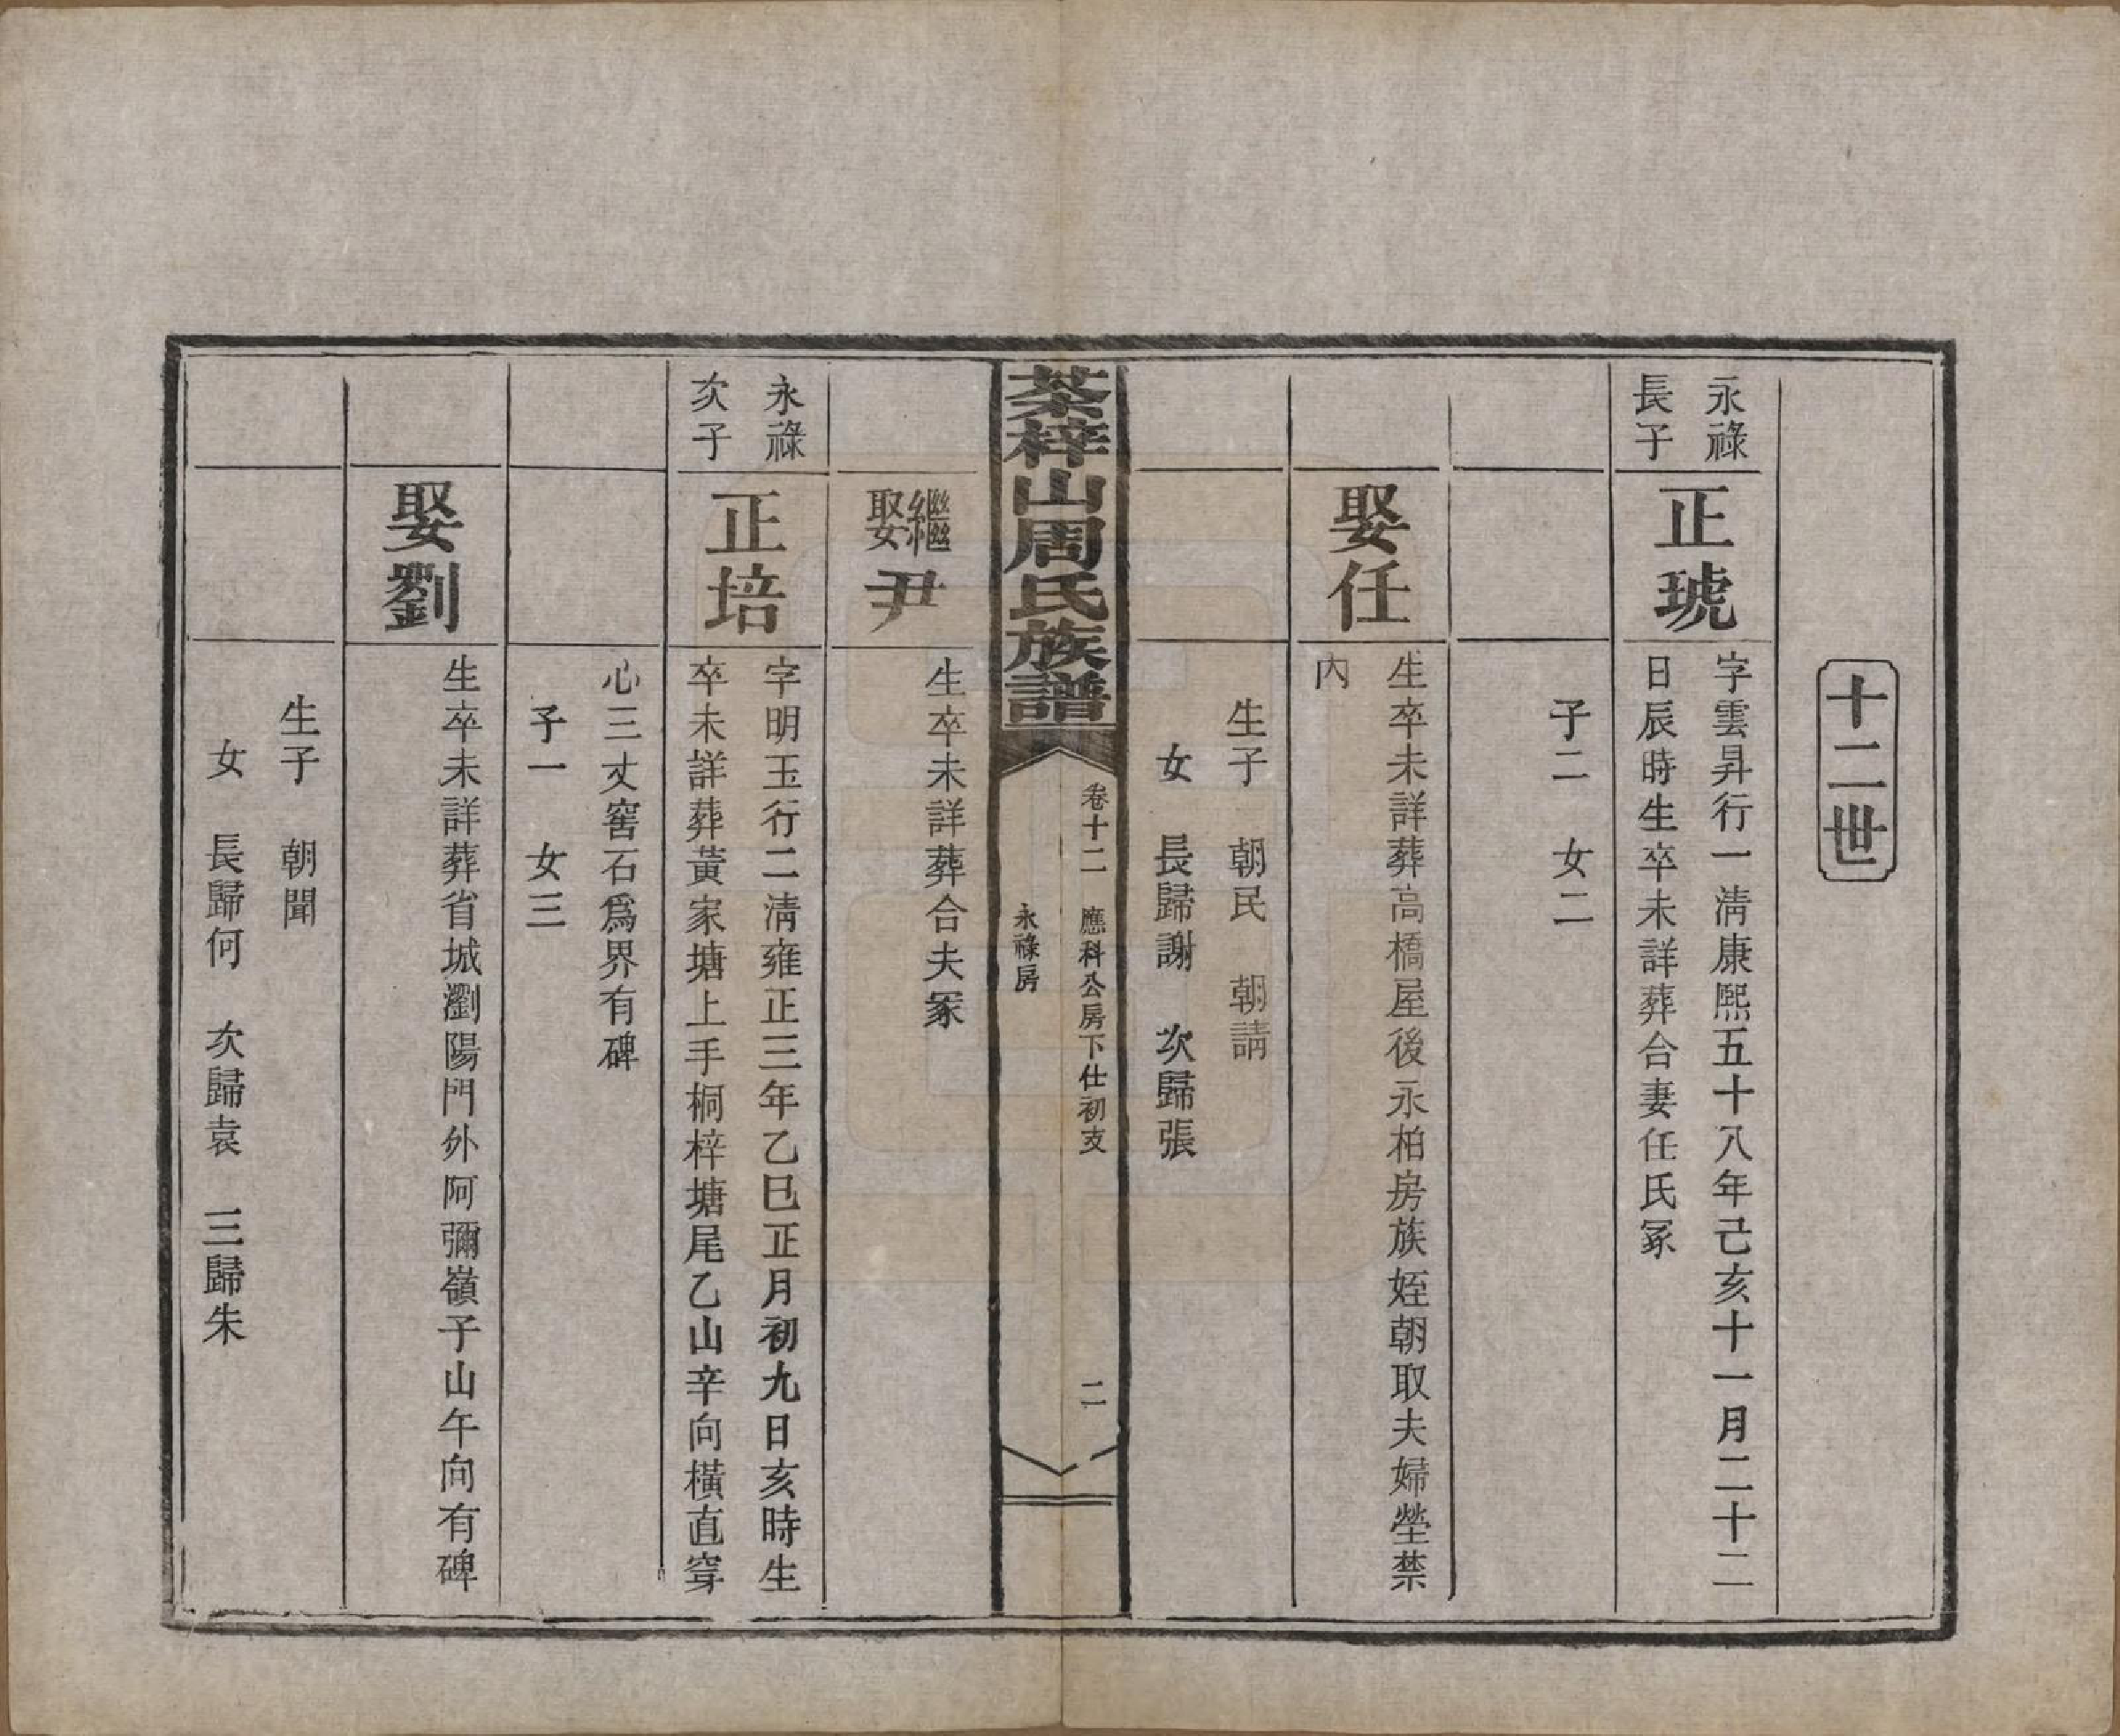 十二世
永祿
長子
正琥
字雲昇行一淸康熙五十八年己亥十一月二十二
日辰時生卒未詳葬合妻任氏冢
子二　女二
娶任
生卒未詳葬高橋屋後永柏房族姪朝取夫婦塋禁
內
生子　朝民　朝請
女　長歸謝　次歸張
茶梓山周氏族譜
卷十二　應科公房下仕初支
永祿房
二
繼娶尹
生卒未詳葬合夫冢
永祿
次子
正培
字明玉行二淸雍正三年乙巳正月初九日亥時生
卒未詳葬黃家塘上手桐梓塘尾乙山辛向橫直穿
心三丈窖石爲界有碑
子一　女三
娶劉
生卒未詳葬省城瀏陽門外阿彌嶺子山午向有碑
生子　朝聞
女　長歸何　次歸袁　三歸朱